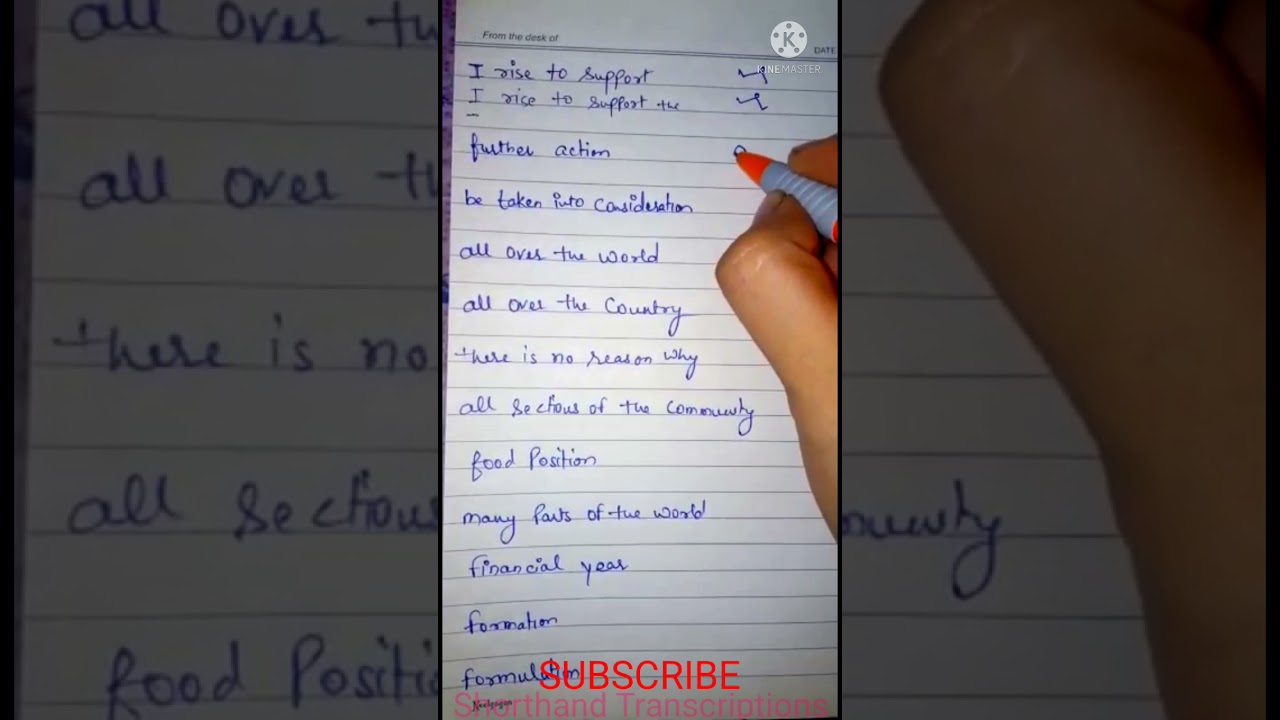 From the desk of
DATE
KINEMASTER
I rise to support
I rice to support the
further action
be taken into consideration
all over the world
all over the Country
there is no reason why
all sections of the community
food Position
many parts of the world
financial year
formation
formulation
SUBSCRIBE
Neelgagan
Shorthand Transcriptions